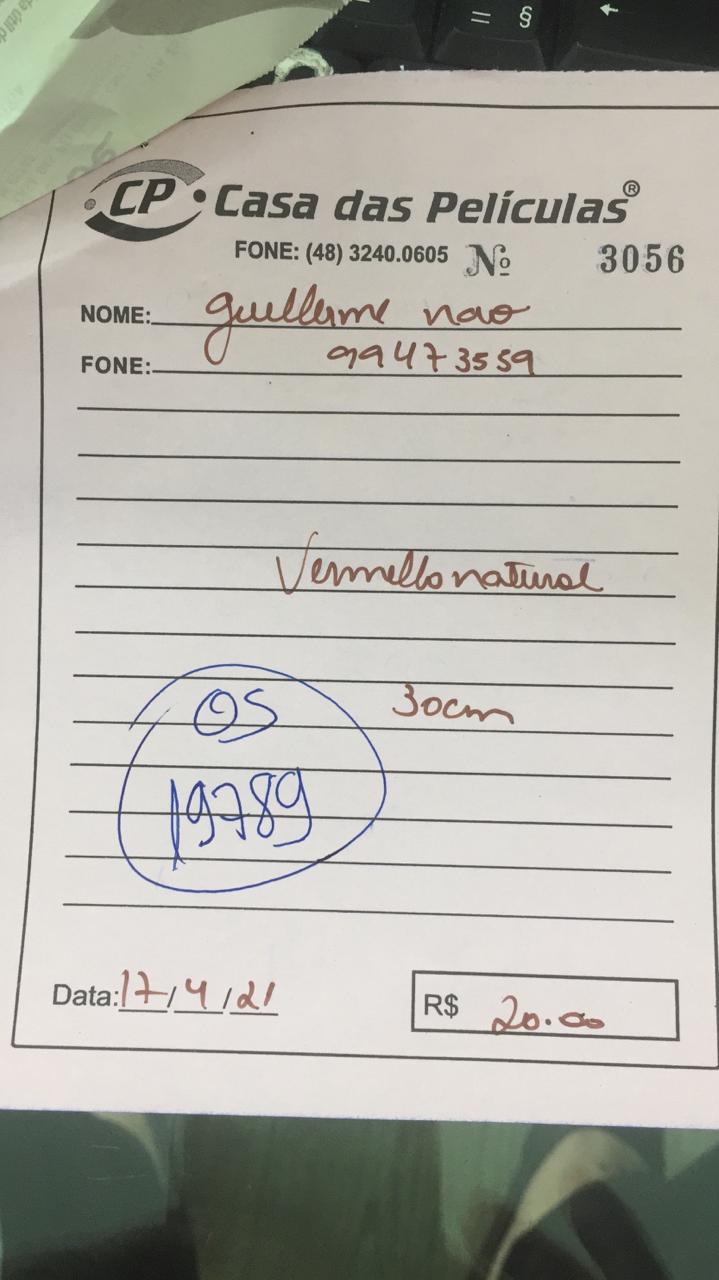 CP Casa das Películas®
FONE: (48) 3240.0605 Nº 3056
NOME: guilherme nao
FONE: 99473559
Vermelho natural
30cm
OS
19789
Data: 17/4/21
R$ 20.00